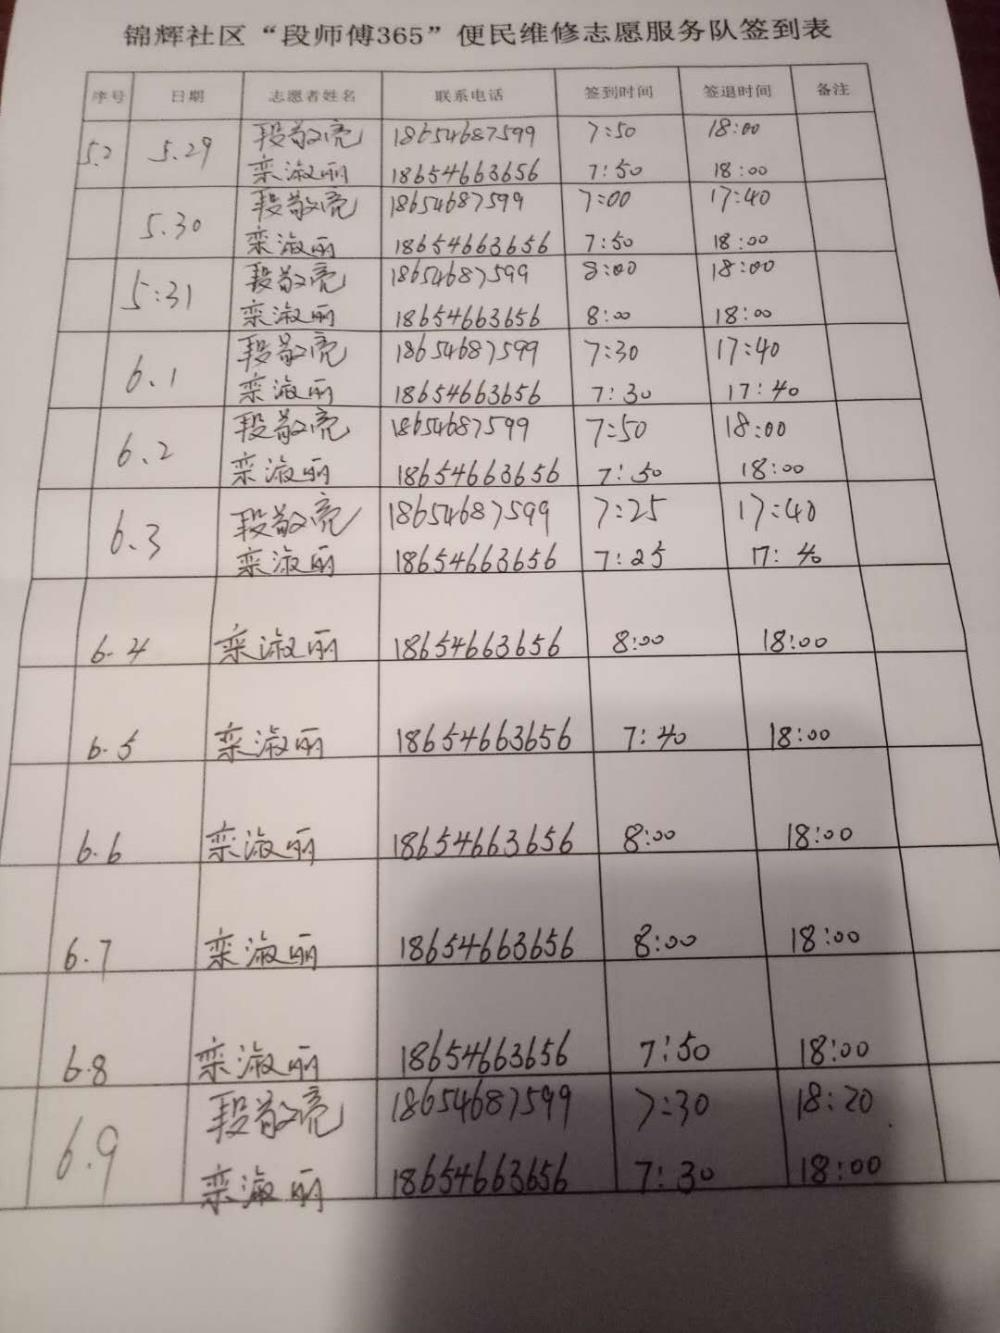 锦辉社区“段师傅365”便民维修志愿服务队签到表
序号 日期 志愿者姓名 联系电话 签到时间 签退时间 备注
5.2 5.29 段敬亮 18654687599 7:50 18:00
栾淑丽 18654663656 7:50 18:00
5.30 段敬亮 18654687599 7:00 17:40
栾淑丽 18654663656 7:50 18:00
5:31 段敬亮 18654687599 8:00 18:00
栾淑丽 18654663656 8:00 18:00
6.1 段敬亮 18654687599 7:30 17:40
栾淑丽 18654663656 7:30 17:40
6.2 段敬亮 18654687599 7:50 18:00
栾淑丽 18654663656 7:50 18:00
6.3 段敬亮 18654687599 7:25 17:40
栾淑丽 18654663656 7:25 17:40
6.4 栾淑丽 18654663656 8:00 18:00
6.5 栾淑丽 18654663656 7:40 18:00
6.6 栾淑丽 18654663656 8:00 18:00
6.7 栾淑丽 18654663656 8:00 18:00
6.8 栾淑丽 18654663656 7:50 18:00
6.9 段敬亮 18654687599 7:30 18:20
栾淑丽 18654663656 7:30 18:00